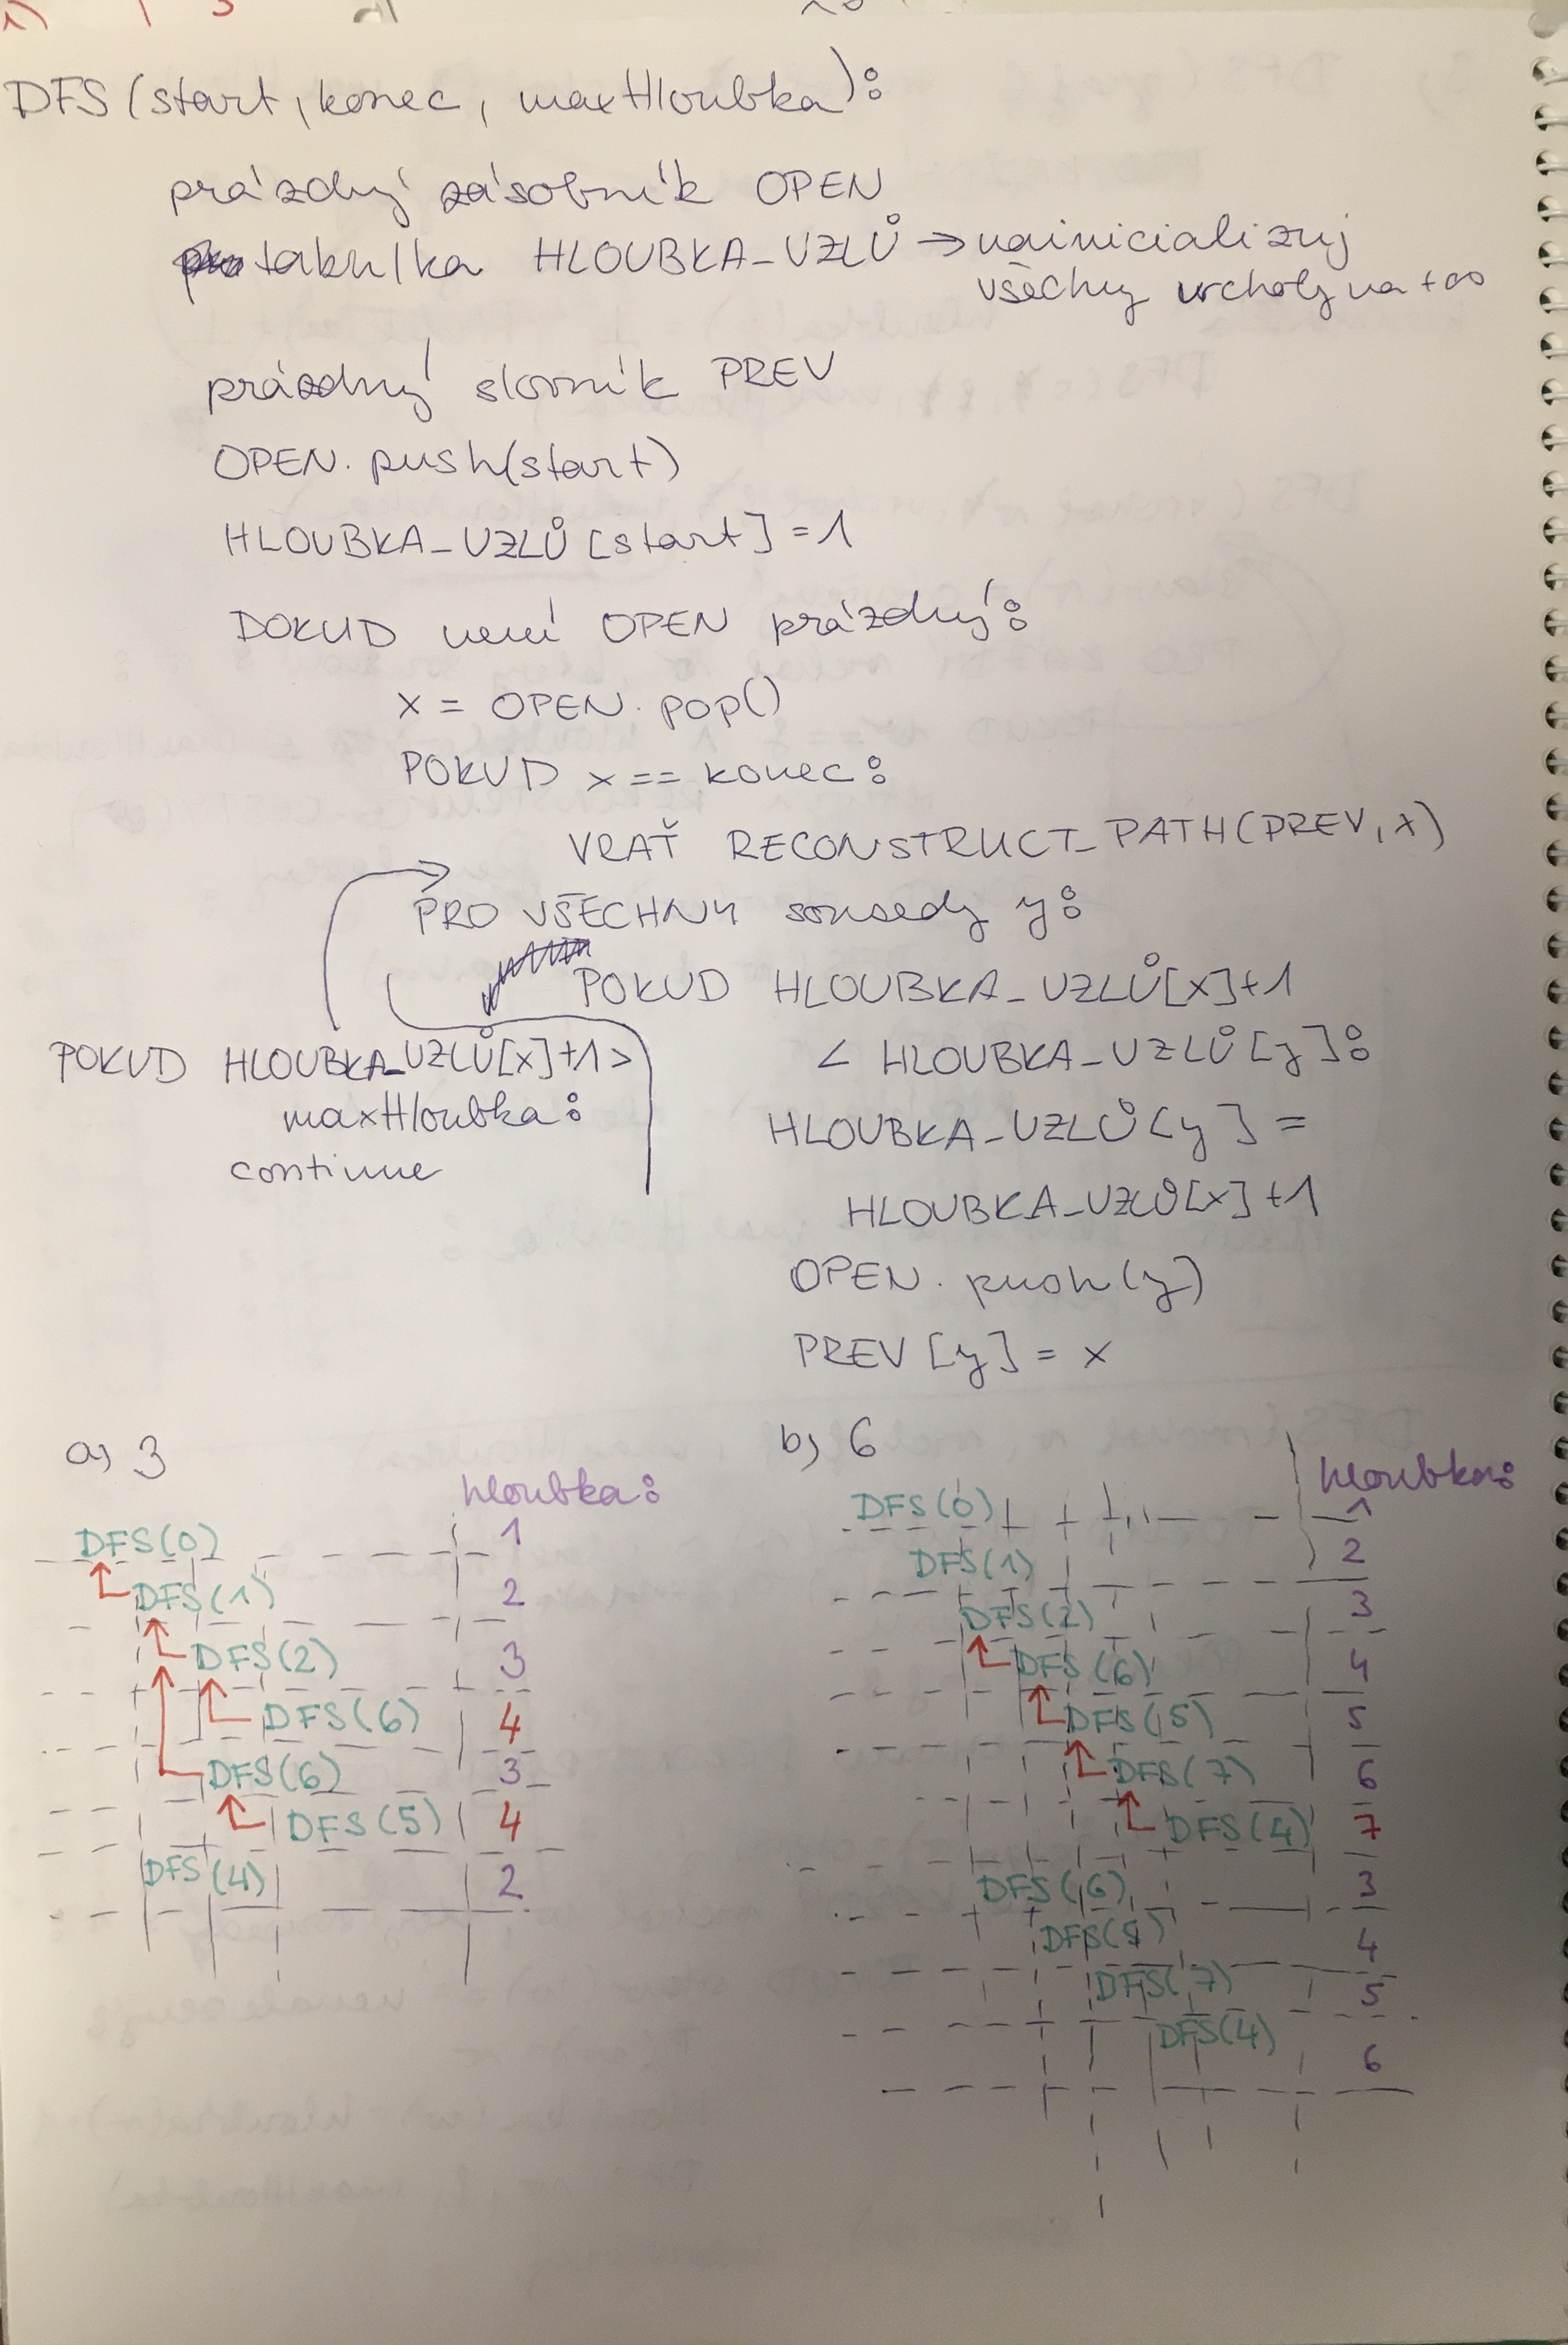 DFS (start, konec, maxHloubka):
prázdný zásobník OPEN
tabulka HLOUBKA_UZLŮ → nainicializuj
všechny vrcholy na +∞
prázdný slovník PREV
OPEN.push(start)
HLOUBKA_UZLŮ[start] = 1
DOKUD není OPEN prázdný:
x = OPEN.pop()
POKUD x == konec:
VRAŤ RECONSTRUCT_PATH(PREV, x)
PRO VŠECHNY sousedy y:
POKUD HLOUBKA_UZLŮ[x]+1
< HLOUBKA_UZLŮ[y]:
POKUD HLOUBKA_UZLŮ[x]+1 >
maxHloubka:
continue
HLOUBKA_UZLŮ[y] =
HLOUBKA_UZLŮ[x]+1
OPEN.push(y)
PREV[y] = x
a) 3
hloubka:
DFS(0) 1
DFS(1) 2
DFS(2) 3
DFS(6) 4
DFS(6) 3
DFS(5) 4
DFS(4) 2
b) 6
hloubka:
DFS(0) 1
DFS(1) 2
DFS(2) 3
DFS(6) 4
DFS(5) 5
DFS(7) 6
DFS(4) 7
DFS(6) 3
DFS(5) 4
DFS(7) 5
DFS(4) 6